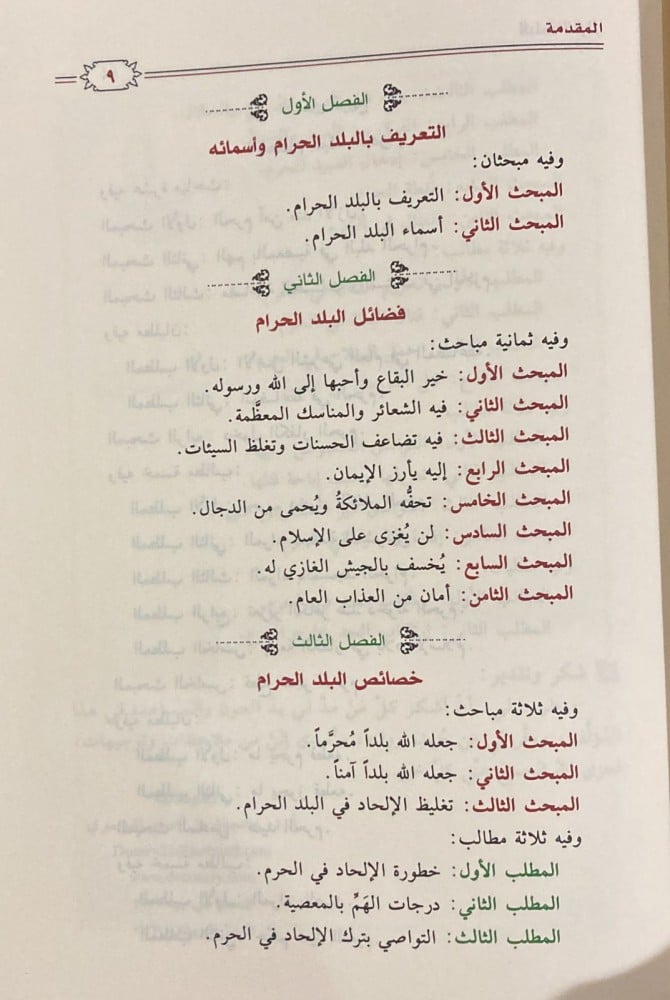 المقدمة
٩
الفصل الأول
التعريف بالبلد الحرام وأسمائه
وفيه مبحثان:
المبحث الأول: التعريف بالبلد الحرام.
المبحث الثاني: أسماء البلد الحرام.
الفصل الثاني
فضائل البلد الحرام
وفيه ثمانية مباحث:
المبحث الأول: خير البقاع وأحبها إلى الله ورسوله.
المبحث الثاني: فيه الشعائر والمناسك المعظَّمة.
المبحث الثالث: فيه تضاعف الحسنات وتغلظ السيئات.
المبحث الرابع: إليه يأرز الإيمان.
المبحث الخامس: تحفُّه الملائكةُ ويُحمى من الدجال.
المبحث السادس: لن يُغزى على الإسلام.
المبحث السابع: يُخسف بالجيش الغازي له.
المبحث الثامن: أمان من العذاب العام.
الفصل الثالث
خصائص البلد الحرام
وفيه ثلاثة مباحث:
المبحث الأول: جعله الله بلداً مُحرَّماً.
المبحث الثاني: جعله الله بلداً آمناً.
المبحث الثالث: تغليظ الإلحاد في البلد الحرام.
وفيه ثلاثة مطالب:
المطلب الأول: خطورة الإلحاد في الحرم.
المطلب الثاني: درجات الهَمِّ بالمعصية.
المطلب الثالث: التواصي بترك الإلحاد في الحرم.